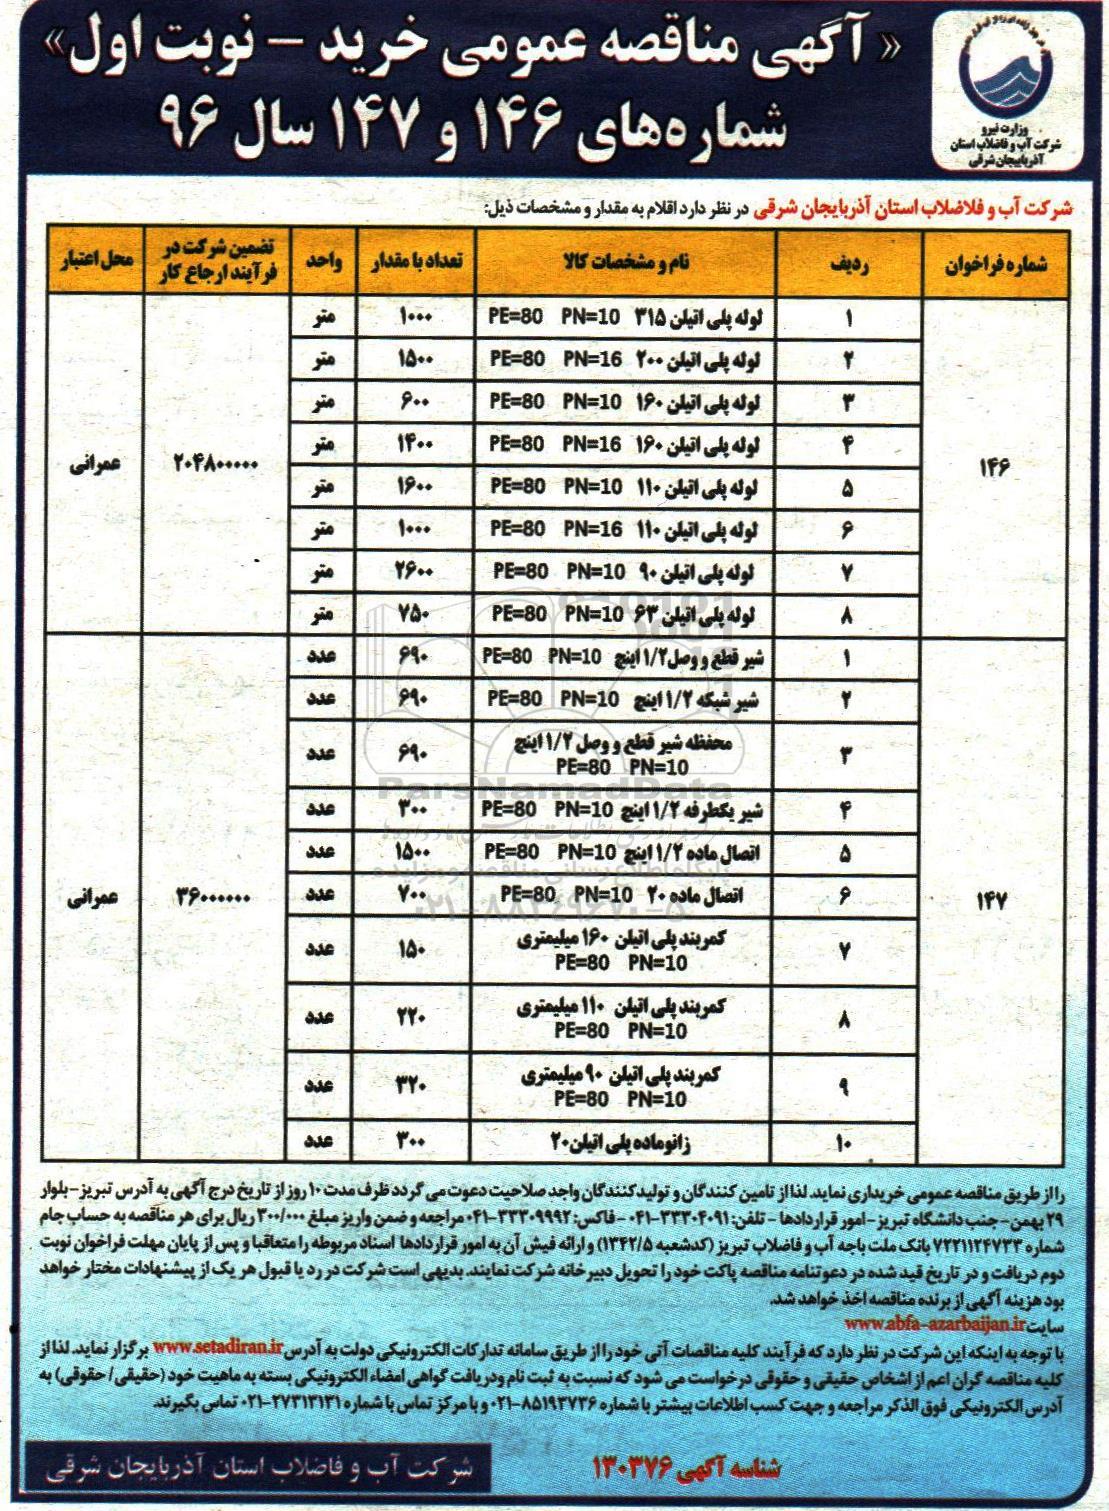 « آگهی مناقصه عمومی خرید – نوبت اول»
شماره‌های ۱۴۶ و ۱۴۷ سال ۹۶
وزارت نیرو
شرکت آب و فاضلاب استان
آذربایجان شرقی
شرکت آب و فلاضلاب استان آذربایجان شرقی در نظر دارد اقلام به مقدار و مشخصات ذیل:
شماره فراخوان ردیف نام و مشخصات کالا تعداد با مقدار واحد تضمین شرکت در فرآیند ارجاع کار محل اعتبار
۱۴۶ ۲۰۴۸۰۰۰۰۰ عمرانی
۱ لوله پلی اتیلن ۳۱۵ PN=10 PE=80 ۱۰۰۰ متر
۲ لوله پلی اتیلن ۲۰۰ PN=16 PE=80 ۱۵۰۰ متر
۳ لوله پلی اتیلن ۱۶۰ PN=10 PE=80 ۶۰۰ متر
۴ لوله پلی اتیلن ۱۶۰ PN=16 PE=80 ۱۴۰۰ متر
۵ لوله پلی اتیلن ۱۱۰ PN=10 PE=80 ۱۶۰۰ متر
۶ لوله پلی اتیلن ۱۱۰ PN=16 PE=80 ۱۰۰۰ متر
۷ لوله پلی اتیلن ۹۰ PN=10 PE=80 ۲۶۰۰ متر
۸ لوله پلی اتیلن ۶۳ PN=10 PE=80 ۷۵۰ متر
۱۴۷ ۳۶۰۰۰۰۰۰ عمرانی
۱ شیر قطع و وصل ۱/۲ اینچ PN=10 PE=80 ۶۹۰ عدد
۲ شیر شبکه ۱/۲ اینچ PN=10 PE=80 ۶۹۰ عدد
۳ محفظه شیر قطع و وصل ۱/۲ اینچ
PN=10 PE=80 ۶۹۰ عدد
۴ شیر یکطرفه ۱/۲ اینچ PN=10 PE=80 ۳۰۰ عدد
۵ اتصال ماده ۱/۲ اینچ PN=10 PE=80 ۱۵۰۰ عدد
۶ اتصال ماده ۲۰ PN=10 PE=80 ۷۰۰ عدد
۷ کمربند پلی اتیلن ۱۶۰ میلیمتری
PN=10 PE=80 ۱۵۰ عدد
۸ کمربند پلی اتیلن ۱۱۰ میلیمتری
PN=10 PE=80 ۲۲۰ عدد
۹ کمربند پلی اتیلن ۹۰ میلیمتری
PN=10 PE=80 ۳۲۰ عدد
۱۰ زانوماده پلی اتیلن ۲۰ ۳۰۰ عدد
ParsNamadData
پایگاه اطلاع رسانی مناقصه و مزایده
۰۲۱-۸۸۳۴۹۶۷۰-۵
را از طریق مناقصه عمومی خریداری نماید. لذا از تامین کنندگان و تولیدکنندگان واجد صلاحیت دعوت می گردد ظرف مدت ۱۰ روز از تاریخ درج آگهی به آدرس تبریز-بلوار
۲۹ بهمن- جنب دانشگاه تبریز -امور قراردادها - تلفن: ۳۳۳۰۴۰۹۱-۰۴۱ -فاکس: ۳۳۳۰۹۹۹۲-۰۴۱ مراجعه و ضمن واریز مبلغ ۳۰۰/۰۰۰ ریال برای هر مناقصه به حساب جام
شماره ۷۲۲۱۱۲۴۷۳۳ بانک ملت باجه آب و فاضلاب تبریز (کدشعبه ۱۳۴۲/۵) و ارائه فیش آن به امور قراردادها اسناد مربوطه را متعاقبا و پس از پایان مهلت فراخوان نوبت
دوم دریافت و در تاریخ قید شده در دعوتنامه مناقصه پاکت خود را تحویل دبیرخانه شرکت نمایند. بدیهی است شرکت در رد یا قبول هر یک از پیشنهادات مختار خواهد
بود هزینه آگهی از برنده مناقصه اخذ خواهد شد.
سایت www.abfa-azarbaijan.ir
با توجه به اینکه این شرکت در نظر دارد که فرآیند کلیه مناقصات آتی خود را از طریق سامانه تدارکات الکترونیکی دولت به آدرس www.setadiran.ir برگزار نماید. لذا از
کلیه مناقصه گران اعم از اشخاص حقیقی و حقوقی درخواست می شود که نسبت به ثبت نام ودریافت گواهی امضاء الکترونیکی بسته به ماهیت خود (حقیقی/ حقوقی) به
آدرس الکترونیکی فوق الذکر مراجعه و جهت کسب اطلاعات بیشتر با شماره ۸۵۱۹۳۷۳۶-۰۲۱ و با مرکز تماس با شماره ۲۷۳۱۳۱۳۱-۰۲۱ تماس بگیرند.
شناسه آگهی ۱۳۰۳۷۶
شرکت آب و فاضلاب استان آذربایجان شرقی